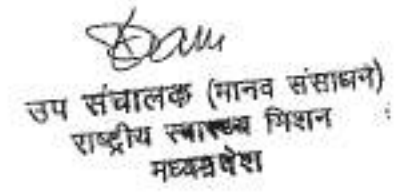 उप संचालक (मानव संसाधन)
राष्ट्रीय स्वास्थ्य मिशन
मध्यप्रदेश